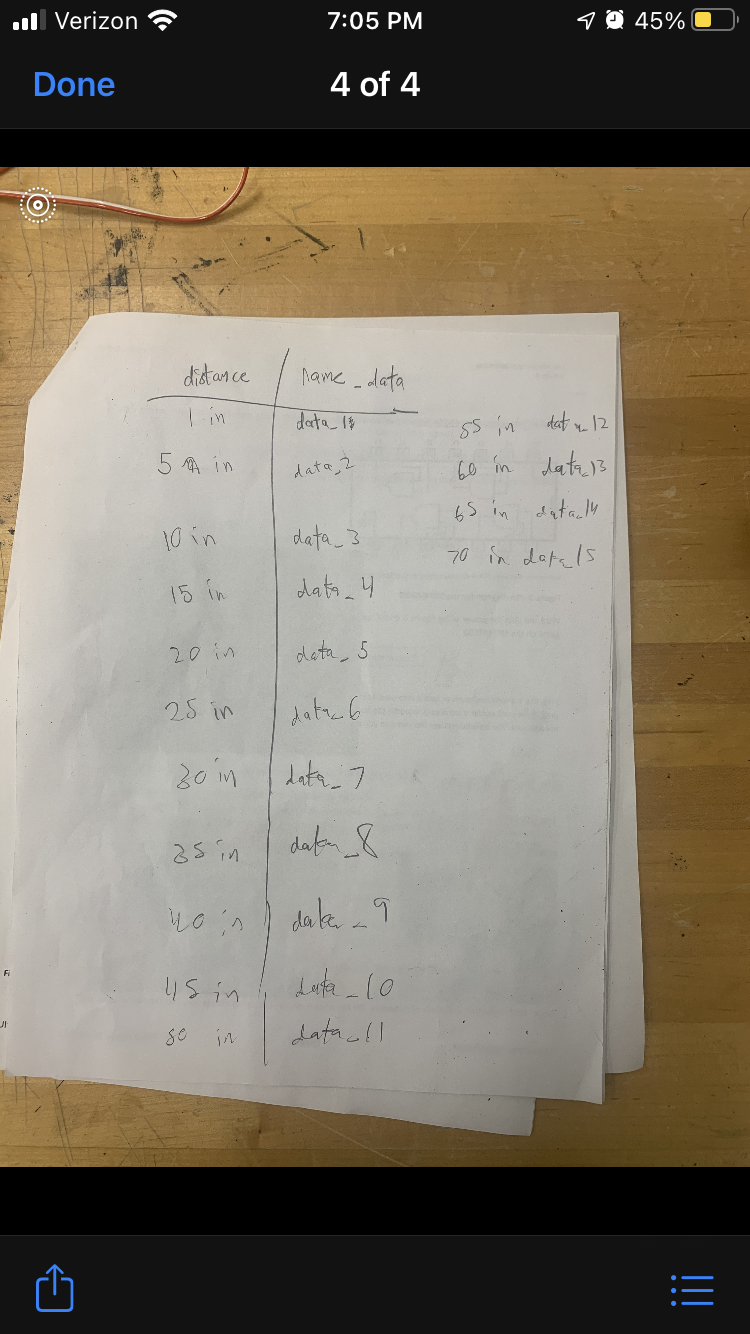 Verizon 7:05 PM 45%
Done 4 of 4
distance name_data
1 in data_1
5 in data_2
10 in data_3
15 in data_4
20 in data_5
25 in data_6
30 in data_7
35 in data_8
40 in data_9
45 in data_10
50 in data_11
55 in data_12
60 in data_13
65 in data_14
70 in data_15